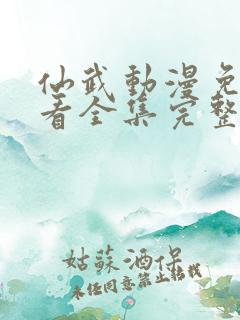 仙武動漫免
看全集完整
姑蘇酒保
未经同意禁止转载